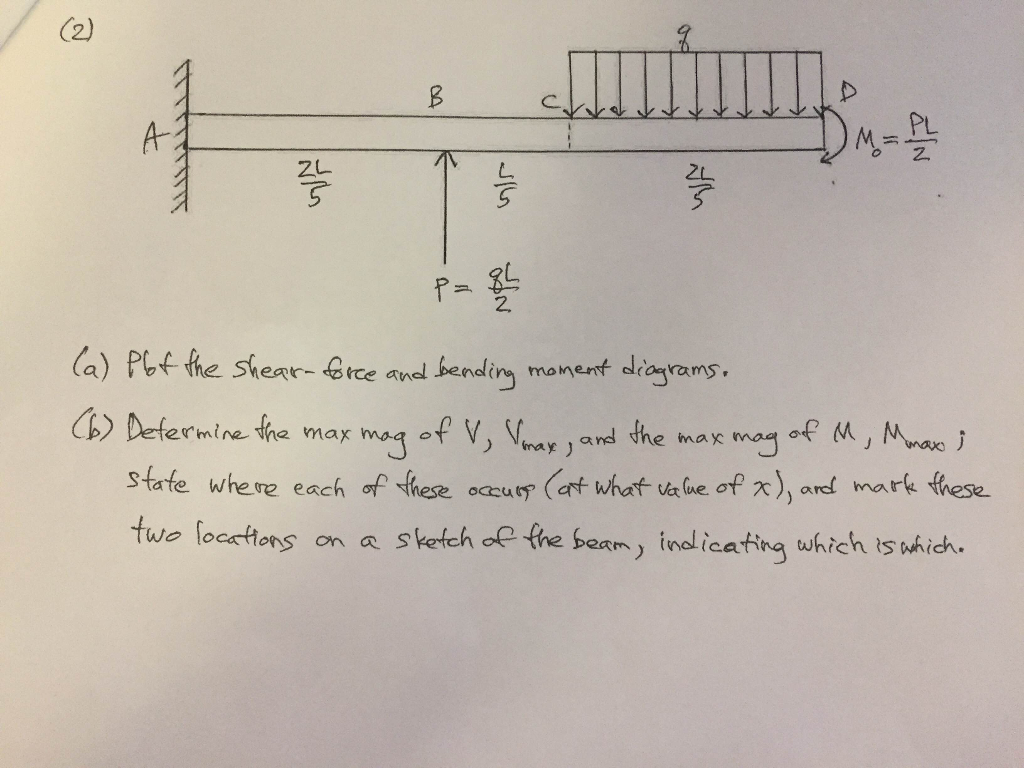 (2)
q
B
C
D
A
M₀ = PL/2
2L/5
L/5
2L/5
P = qL/2
(a) Plot the shear-force and bending moment diagrams.
(b) Determine the max mag of V, Vmax, and the max mag of M, Mmax;
state where each of these occurs (at what value of x), and mark these
two locations on a sketch of the beam, indicating which is which.